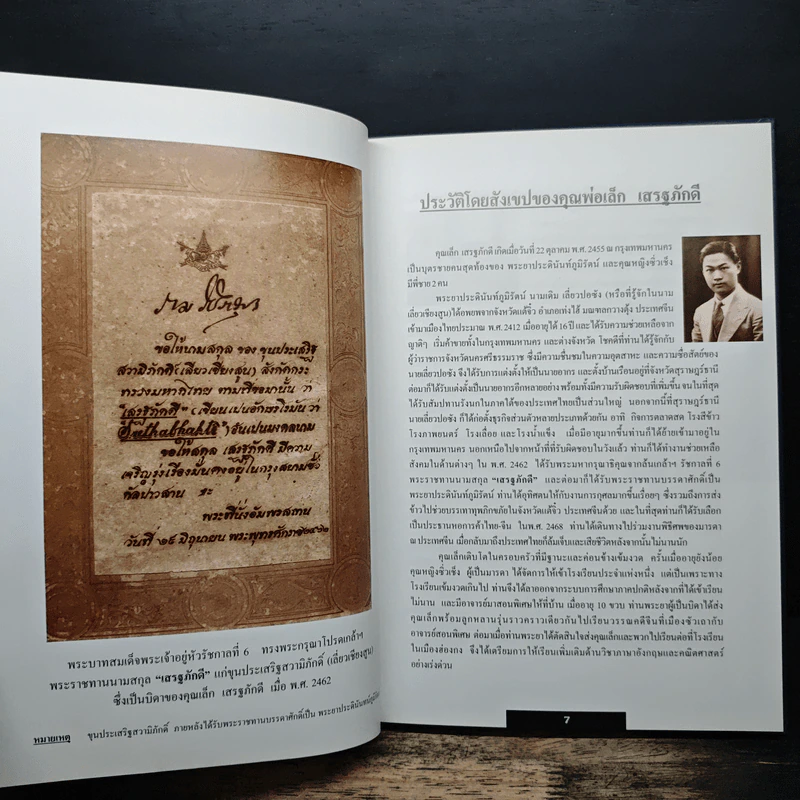 ราม วชิราวุธ
ขอให้นามสกุล ของ ขุนประเสริฐ
สวามิภักดิ์ (เลี่ยวเซียงสุน) สังกัดกระ
ทรวงมหาดไทย ตามที่ขอมานั้น ว่า
"เสรฐภักดี" (เขียนเปนอักษรโรมันว่า
"Sresthabhakti") อันเปนมงคลนาม
ขอให้สกุล เสรฐภักดี มีความ
เจริญรุ่งเรืองมั่นคงอยู่ในกรุงสยามชั่ว
กัลปาวสาน ฯะ
พระที่นั่งอัมพรสถาน
วันที่ มิถุนายน พระพุทธศักราช ๒๔๖๒
พระบาทสมเด็จพระเจ้าอยู่หัวรัชกาลที่ 6 ทรงพระกรุณาโปรดเกล้าฯ
พระราชทานนามสกุล "เสรฐภักดี" แก่ขุนประเสริฐสวามิภักดิ์ (เลี่ยวเซียงสุน)
ซึ่งเป็นบิดาของคุณเล็ก เสรฐภักดี เมื่อ พ.ศ. 2462
หมายเหตุ ขุนประเสริฐสวามิภักดิ์ ภายหลังได้รับพระราชทานบรรดาศักดิ์เป็น พระยาประดินันท์ภูมิรัตน์
ประวัติโดยสังเขปของคุณพ่อเล็ก เสรฐภักดี
คุณเล็ก เสรฐภักดี เกิดเมื่อวันที่ 22 ตุลาคม พ.ศ. 2455 ณ กรุงเทพมหานคร
เป็นบุตรชายคนสุดท้องของ พระยาประดินันท์ภูมิรัตน์ และคุณหญิงซิ่วเซ็ง
มีพี่ชาย 2 คน
พระยาประดินันท์ภูมิรัตน์ นามเดิม เลี่ยวปอซัง (หรือที่รู้จักในนาม
เลี่ยวเซียงสุน) ได้อพยพจากจังหวัดแต้จิ๋ว อำเภอเท่งไฮ้ มณฑลกวางตุ้ง ประเทศจีน
เข้ามาเมืองไทยประมาณ พ.ศ. 2412 เมื่ออายุได้ 16 ปี และได้รับความช่วยเหลือจาก
ญาติๆ เริ่มค้าขายทั้งในกรุงเทพมหานคร และต่างจังหวัด โชคดีที่ท่านได้รู้จักกับ
ผู้ว่าราชการจังหวัดนครศรีธรรมราช ซึ่งมีความชื่นชมในความอุตสาหะ และความซื่อสัตย์ของ
นายเลี่ยวปอซัง จึงได้รับการแต่งตั้งให้เป็นนายอากร และตั้งบ้านเรือนอยู่ที่จังหวัดสุราษฎร์ธานี
ต่อมาก็ได้รับแต่งตั้งเป็นนายอากรอีกหลายอย่าง พร้อมทั้งมีความรับผิดชอบที่เพิ่มขึ้น จนในที่สุด
ได้รับสัมปทานรังนกในภาคใต้ของประเทศไทยเป็นส่วนใหญ่ นอกจากนี้ที่สุราษฎร์ธานี
นายเลี่ยวปอซัง ก็ได้ก่อตั้งธุรกิจส่วนตัวหลายประเภทด้วยกัน อาทิ กิจการตลาดสด โรงสีข้าว
โรงภาพยนตร์ โรงเลื่อย และโรงน้ำแข็ง เมื่อมีอายุมากขึ้นท่านก็ได้ย้ายเข้ามาอยู่ใน
กรุงเทพมหานคร นอกเหนือไปจากหน้าที่ที่รับผิดชอบในวังแล้ว ท่านก็ได้ทำงานช่วยเหลือ
สังคมในด้านต่างๆ ใน พ.ศ. 2462 ได้รับพระมหากรุณาธิคุณจากล้นเกล้าฯ รัชกาลที่ 6
พระราชทานนามสกุล "เสรฐภักดี" และต่อมาก็ได้รับพระราชทานบรรดาศักดิ์เป็น
พระยาประดินันท์ภูมิรัตน์ ท่านได้อุทิศตนให้กับงานการกุศลมากขึ้นเรื่อยๆ ซึ่งรวมถึงการส่ง
ข้าวไปช่วยบรรเทาทุพภิกขภัยในจังหวัดแต้จิ๋ว ประเทศจีนด้วย และในที่สุดท่านก็ได้รับเลือก
เป็นประธานหอการค้าไทย-จีน ใน พ.ศ. 2468 ท่านได้เดินทางไปร่วมงานพิธีศพของมารดา
ณ ประเทศจีน เมื่อกลับมาถึงประเทศไทยก็ล้มเจ็บและเสียชีวิตหลังจากนั้นไม่นานนัก
คุณเล็กเติบโตในครอบครัวที่มีฐานะและค่อนข้างเข้มงวด ครั้นเมื่ออายุยังน้อย
คุณหญิงซิ่วเซ็ง ผู้เป็นมารดา ได้จัดการให้เข้าโรงเรียนประจำแห่งหนึ่ง แต่เป็นเพราะทาง
โรงเรียนเข้มงวดเกินไป ท่านจึงได้ลาออกจากระบบการศึกษาภาคปกติหลังจากที่ได้เข้าเรียน
ไม่นาน และมีอาจารย์มาสอนพิเศษให้ที่บ้าน เมื่ออายุ 10 ขวบ ท่านพระยาผู้เป็นบิดาได้ส่ง
คุณเล็กพร้อมลูกหลานรุ่นราวคราวเดียวกันไปเรียนวรรณคดีจีนที่เมืองซัวเถากับ
อาจารย์สอนพิเศษ ต่อมาเมื่อท่านพระยาได้ตัดสินใจส่งคุณเล็กและพวกไปเรียนต่อที่โรงเรียน
ในเมืองฮ่องกง จึงได้เตรียมการให้เรียนเพิ่มเติมด้านวิชาภาษาอังกฤษและคณิตศาสตร์
อย่างเร่งด่วน
7